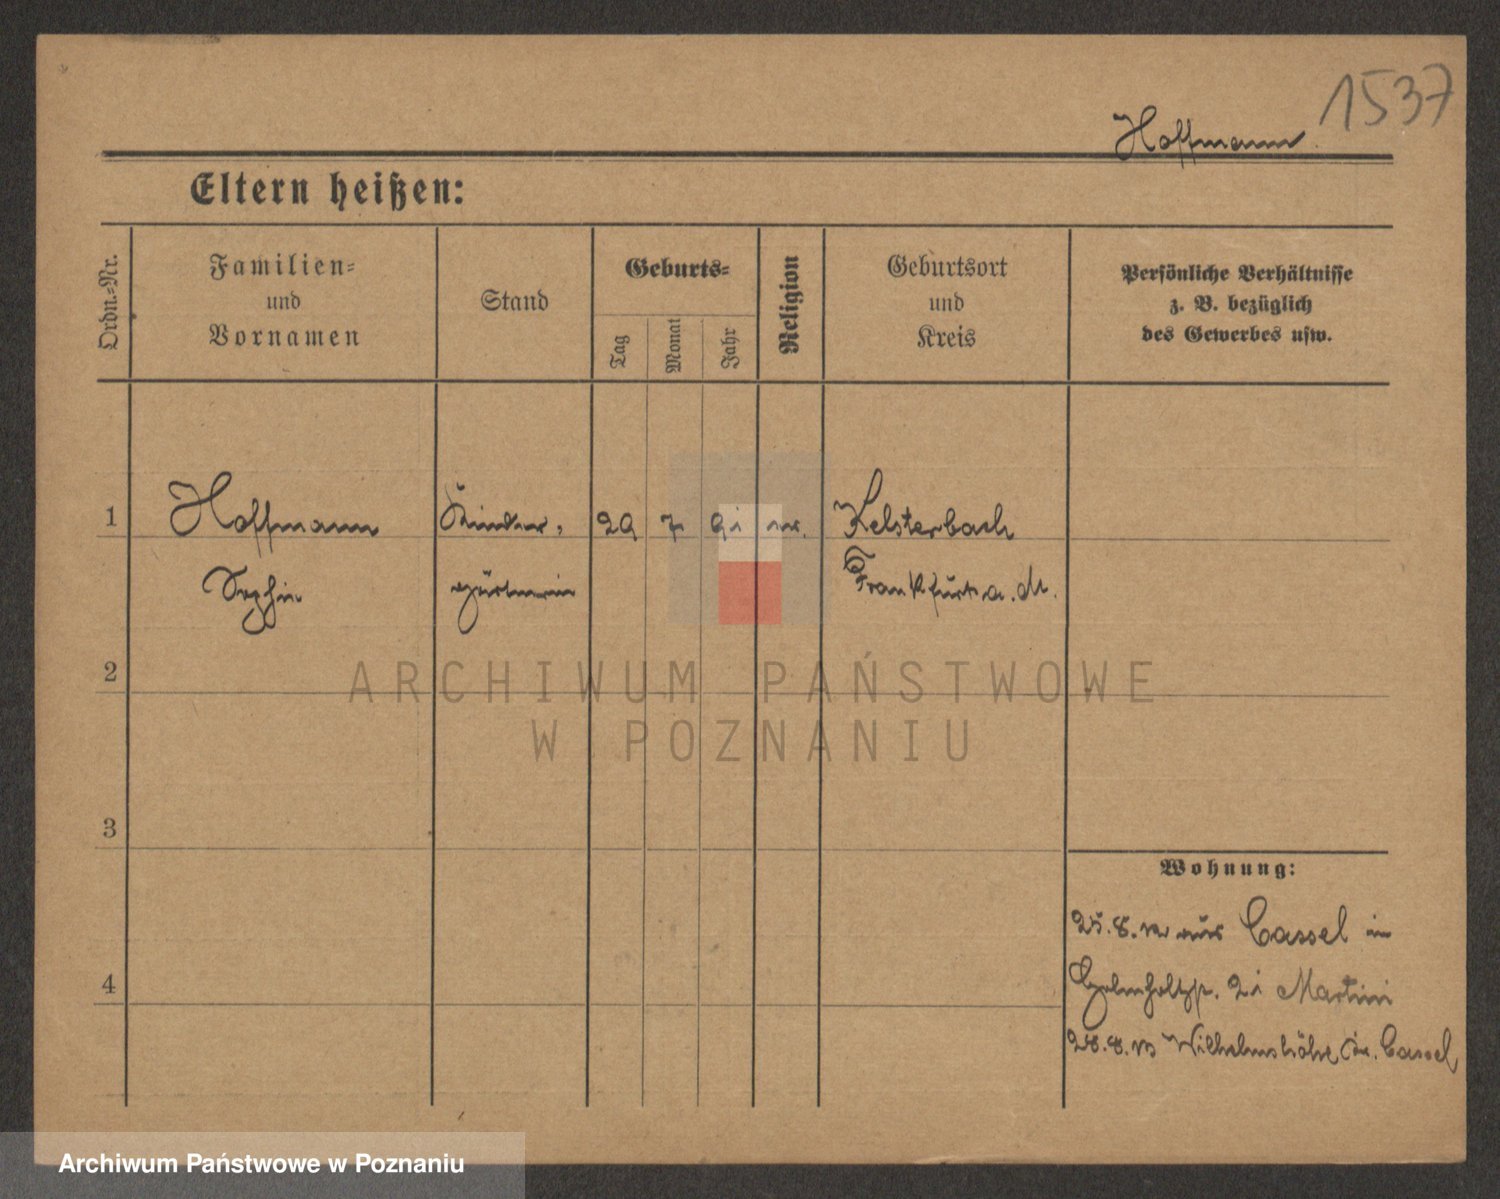 1537
Hoffmann.
Eltern heißen:
Ordn.-Nr.
Familien-
und
Vornamen
Stand
Geburts-
Tag
Monat
Jahr
Religion
Geburtsort
und
Kreis
Persönliche Verhältnisse
z. B. bezüglich
des Gewerbes usw.
1 Hoffmann Kinder- 29 7 91 Kelsterbach
Sophie gärtnerin Frankfurt a. M.
2
ARCHIWUM PAŃSTWOWE
W POZNANIU
3
Wohnung:
25.8. aus Cassel in
21 Martini
4
28.8. Wilhelmshöhe Cassel
Archiwum Państwowe w Poznaniu